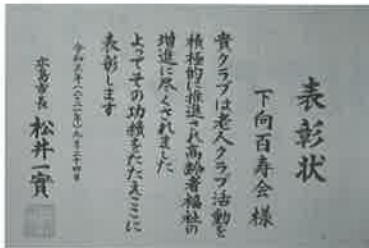 表彰状
下向百寿会様
貴クラブは老人クラブ活動を
積極的に推進され高齢者福祉の
増進に尽くされました
よってその功績をたたえここに
表彰します
広島市長 松井一實